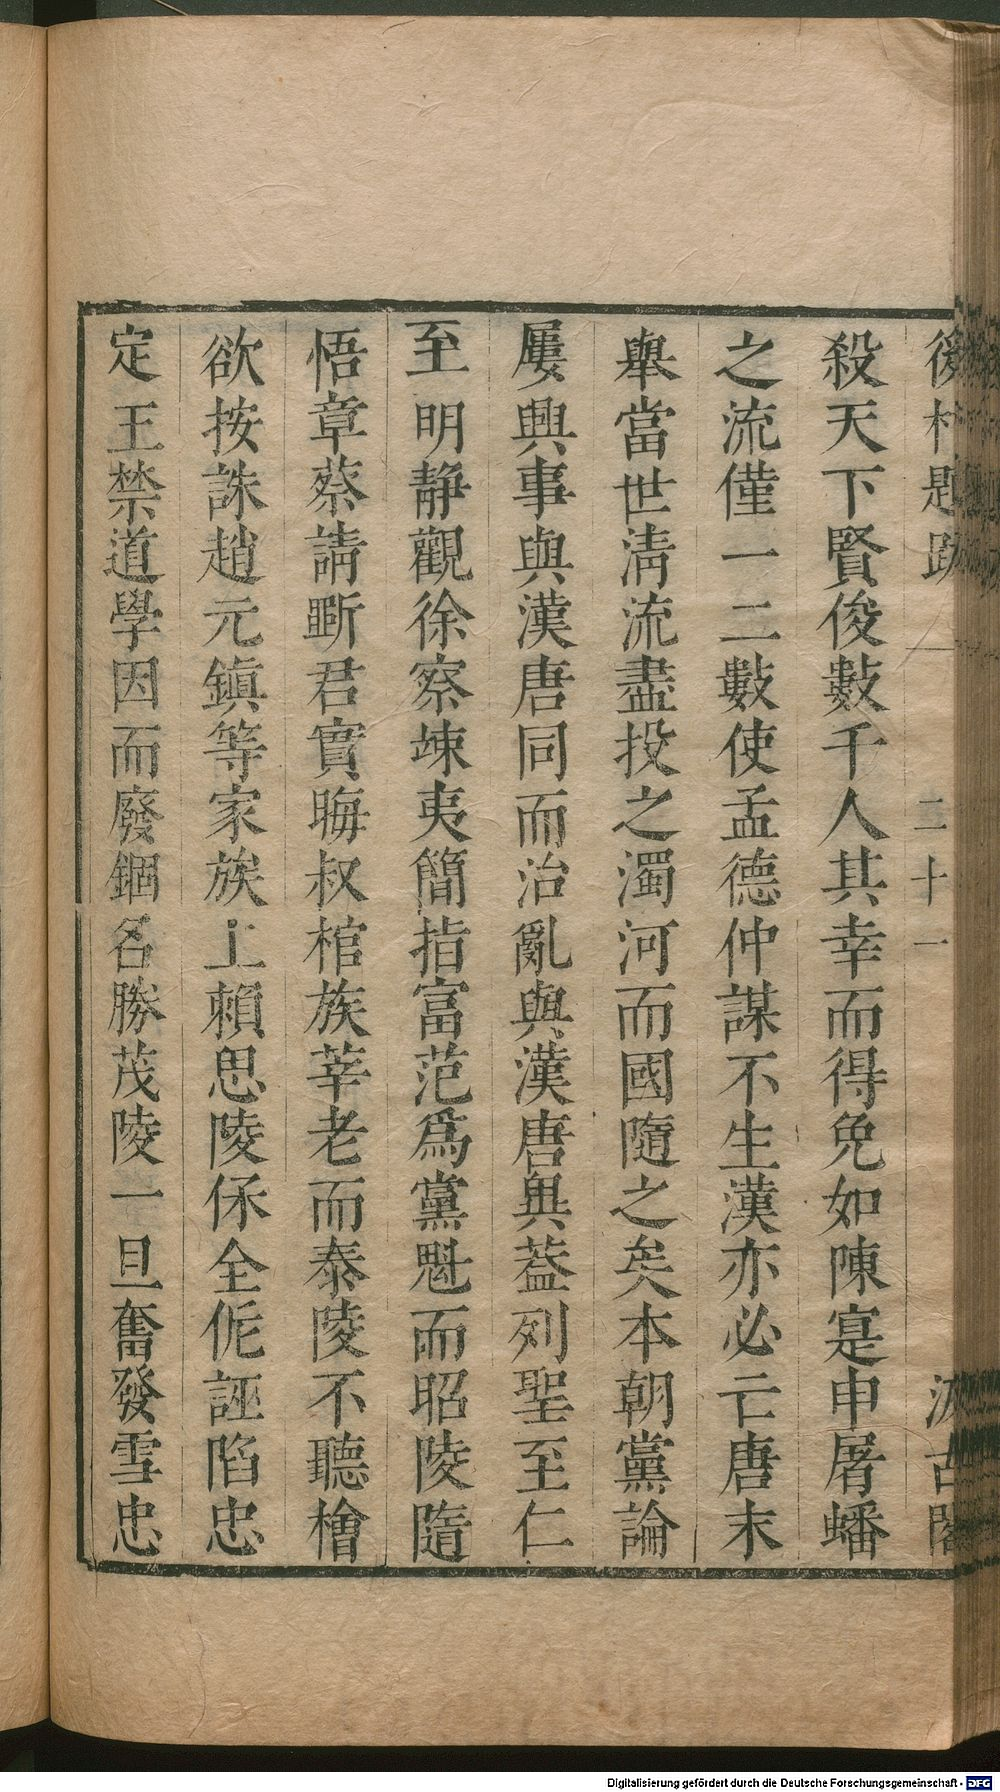 後村題跋 二十一 汲古閣
殺天下賢俊數千人其幸而得免如陳寔申屠蟠
之流僅一二數使孟德仲謀不生漢亦必亡唐末
舉當世清流盡投之濁河而國隨之矣本朝黨論
屢興事與漢唐同而治亂與漢唐異葢列聖至仁
至明靜觀徐察竦夷簡指富范爲黨魁而昭陵隨
悟章蔡請斲君實晦叔棺族莘老而泰陵不聽檜
欲按誅趙元鎮等家族上賴思陵保全侂誣陷忠
定王禁道學因而廢錮名勝茂陵一旦奮發雪忠
Digitalisierung gefördert durch die Deutsche Forschungsgemeinschaft - DFG